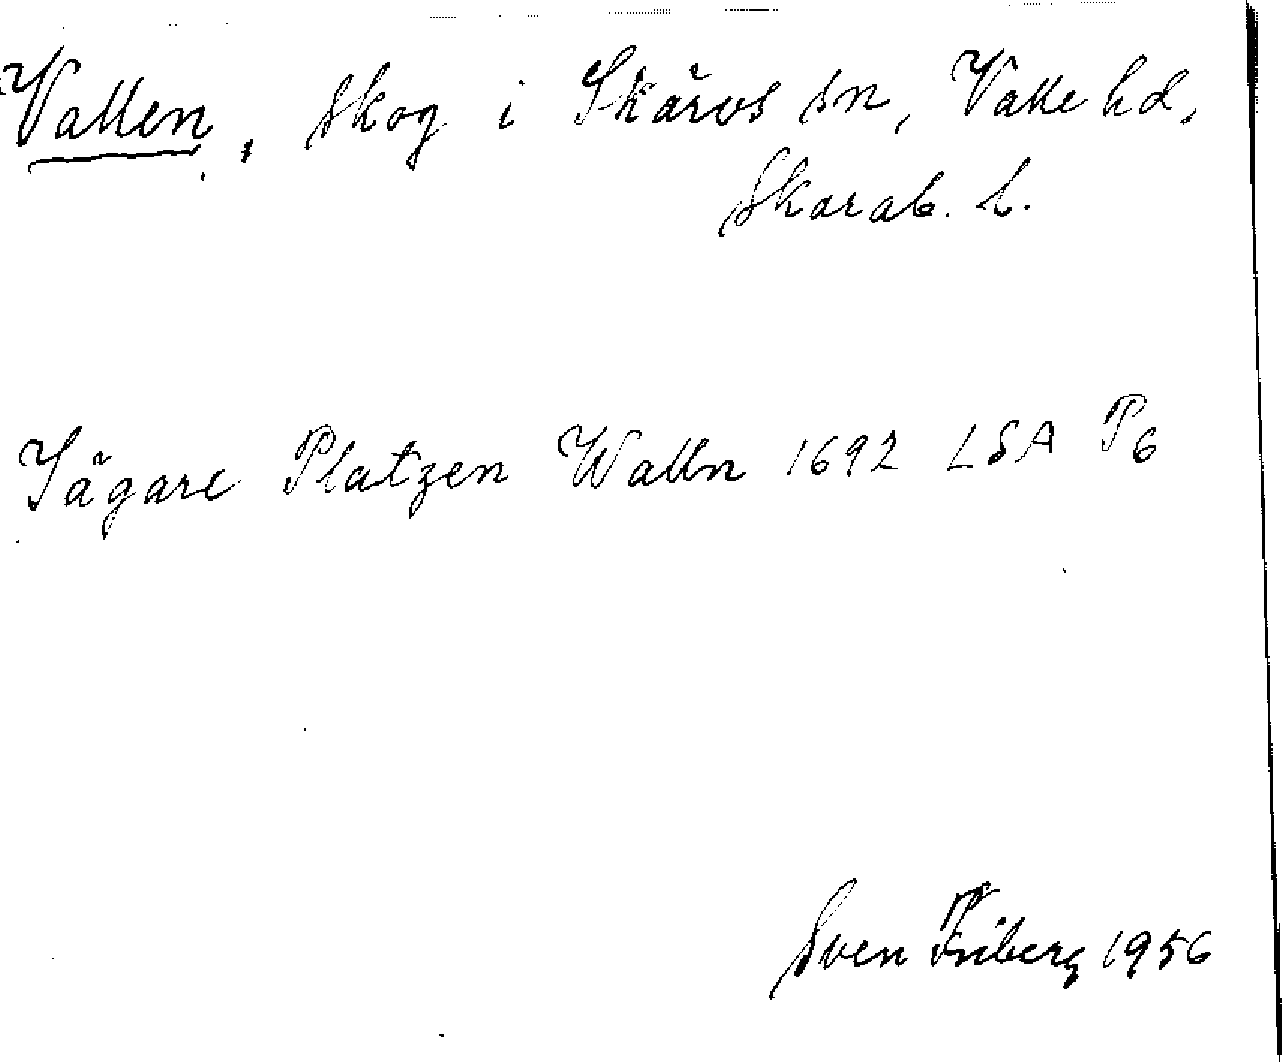 Vallen, skog i Skärvs sn, Valle hd,
Skarab. l.
Jägare Platzen Walln 1692 LSA P6
Sven Friberg 1956